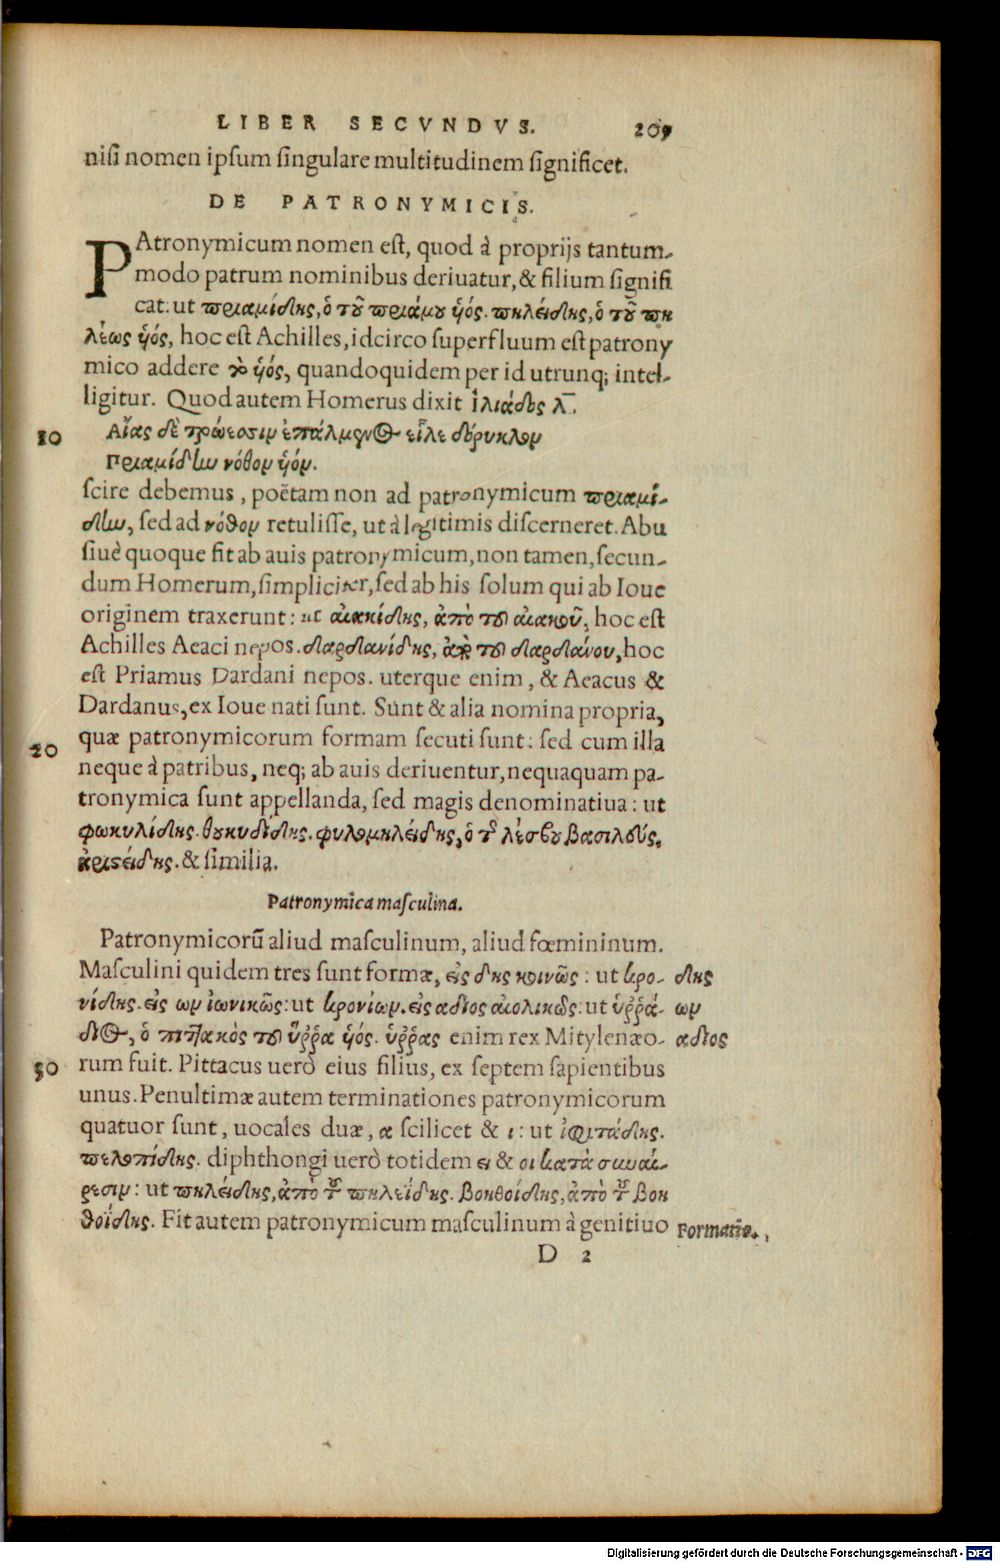 LIBER SECVNDVS. 209
nisi nomen ipsum singulare multitudinem significet.
DE PATRONYMICIS.
PAtronymicum nomen est, quod à proprijs tantum-
modo patrum nominibus deriuatur, & filium signifi
cat. ut πριαμίδης, ὁ τοῦ πριάμου ὑός. πηλείδης, ὁ τοῦ πη
λέως ὑός, hoc est Achilles, idcirco superfluum est patrony
mico addere τὸ ὑός, quandoquidem per id utrunq; intel-
ligitur. Quod autem Homerus dixit ἰλιάδος λ̅.
10 Αἴας δὲ τρώεσσιν ἐπάλμενος εἷλε δόρυκλον
Πριαμίδην νόθον ὑόν.
scire debemus, poëtam non ad patronymicum πριαμί-
δην, sed ad νόθον retulisse, ut à legitimis discerneret. Abu
siuè quoque fit ab auis patronymicum, non tamen, secun-
dum Homerum, simpliciter, sed ab his solum qui ab Ioue
originem traxerunt: ut αἰακίδης, ἀπὸ τοῦ αἰακοῦ, hoc est
Achilles Aeaci nepos. δαρδανίδης, ἀπὸ τοῦ δαρδάνου, hoc
est Priamus Dardani nepos. uterque enim, & Aeacus &
Dardanus, ex Ioue nati sunt. Sunt & alia nomina propria,
20 quæ patronymicorum formam secuti sunt: sed cum illa
neque à patribus, neq; ab auis deriuentur, nequaquam pa-
tronymica sunt appellanda, sed magis denominatiua: ut
φωκυλίδης. θουκυδίδης. φυλομηλείδης, ὁ τῆς λέσβου βασιλεύς.
ἀριστείδης. & similia.
Patronymica masculina.
Patronymicorũ aliud masculinum, aliud fœmininum.
Masculini quidem tres sunt formæ, εἰς δης κοινῶς: ut κρο- δης
νίδης. εἰς ων ἰωνικῶς: ut κρονίων. εἰς αδιος αἰολικῶς: ut ὑῤῥά- ων
διος, ὁ πιττακὸς τοῦ ὕῤῥα ὑός. ὑῤῥας enim rex Mitylenæo- αδιος
30 rum fuit. Pittacus uerò eius filius, ex septem sapientibus
unus. Penultimæ autem terminationes patronymicorum
quatuor sunt, uocales duæ, α scilicet & ι: ut ἱφιτάδης.
πελοπίδης. diphthongi uerò totidem ει & οι κατὰ συναί-
ρεσιν: ut πηλείδης, ἀπὸ τοῦ πηλεΐδης. βοηθοίδης, ἀπὸ τοῦ βοη
θοΐδης. Fit autem patronymicum masculinum à genitiuo Formatio.
D 2
Digitalisierung gefördert durch die Deutsche Forschungsgemeinschaft - DFG